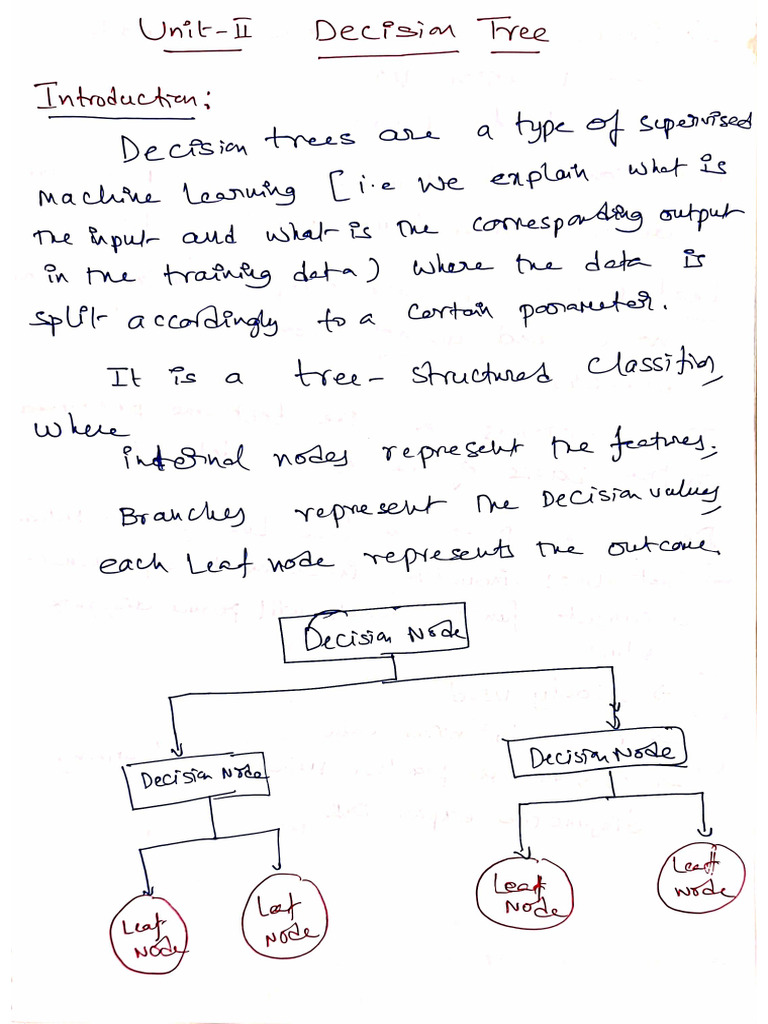 Unit-II Decision Tree
Introduction:
Decision trees are a type of supervised
Machine Learning [i.e we explain what is
the input and what is the corresponding output
in the training data) where the data is
split accordingly to a certain parameter.
It is a tree-structured
where
internal nodes represent the features.
Branches represent the Decision values
each Leaf node represents the outcome.
Decision Node
Decision Node
Decision Node
Leaf
Node
Leaf
Node
Leaf
Node
Leaf
Node